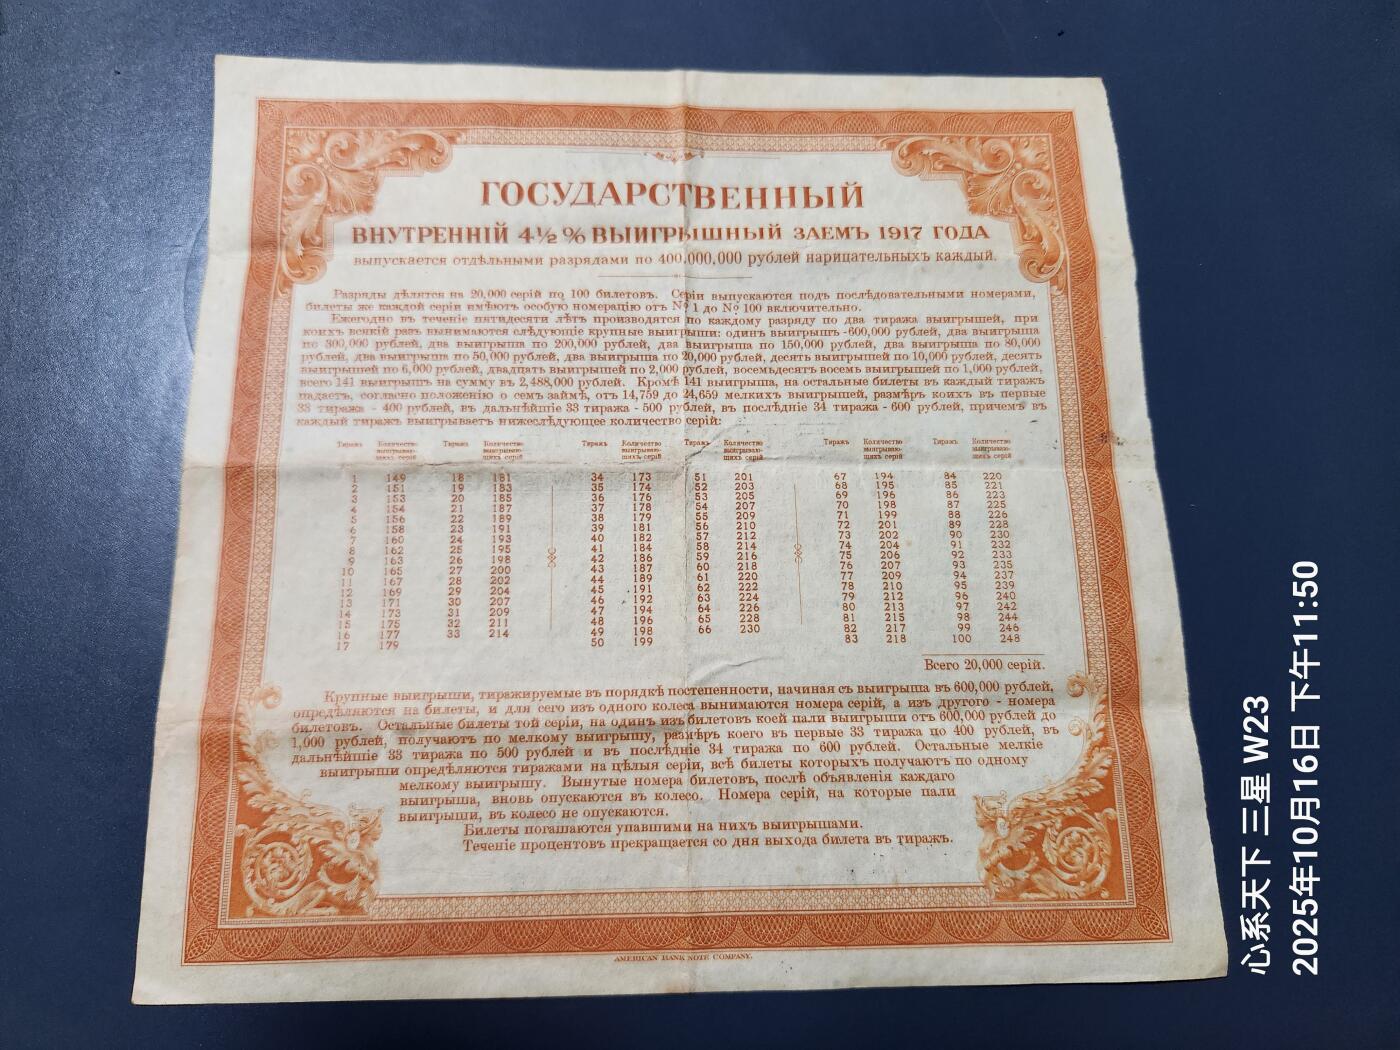 ГОСУДАРСТВЕННЫЙ
ВНУТРЕННІЙ 4½% ВЫИГРЫШНЫЙ ЗАЕМЪ 1917 ГОДА
выпускается отдѣльными разрядами по 400,000,000 рублей нарицательныхъ каждый.
Разряды дѣлятся на 20,000 серій по 100 билетовъ. Серіи выпускаются подъ послѣдовательными номерами,
билеты же каждой серіи имѣютъ особую номерацію отъ № 1 до № 100 включительно.
Ежегодно въ теченіе пятидесяти лѣтъ производятся по каждому разряду по два тиража выигрышей, при
коихъ всякій разъ вынимаются слѣдующіе крупные выигрыши: одинъ выигрышъ -600,000 рублей, два выигрыша
по 300,000 рублей, два выигрыша по 200,000 рублей, два выигрыша по 150,000 рублей, два выигрыша по 80,000
рублей, два выигрыша по 50,000 рублей, два выигрыша по 20,000 рублей, десять выигрышей по 10,000 рублей, десять
выигрышей по 6,000 рублей, двадцать выигрышей по 2,000 рублей, восемьдесятъ восемь выигрышей по 1,000 рублей,
всего 141 выигрышъ на сумму въ 2,488,000 рублей. Кромѣ 141 выигрыша, на остальные билеты въ каждый тиражъ
падаетъ, согласно положенію о семъ займѣ, отъ 14,759 до 24,659 мелкихъ выигрышей, размѣръ коихъ въ первые
33 тиража - 400 рублей, въ дальнѣйшіе 33 тиража - 500 рублей, въ послѣдніе 34 тиража - 600 рублей, причемъ въ
каждый тиражъ выигрываетъ нижеслѣдующее количество серій:
Тиражъ Количество выигрываю- щихъ серій Тиражъ Количество выигрываю- щихъ серій Тиражъ Количество выигрываю- щихъ серій Тиражъ Количество выигрываю- щихъ серій Тиражъ Количество выигрываю- щихъ серій Тиражъ Количество выигрываю- щихъ серій
1 149 18 181 34 173 51 201 67 194 84 220
2 151 19 183 35 174 52 203 68 195 85 221
3 153 20 185 36 176 53 205 69 196 86 223
4 154 21 187 37 178 54 207 70 198 87 225
5 156 22 189 38 179 55 209 71 199 88 226
6 158 23 191 39 181 56 210 72 201 89 228
7 160 24 193 40 182 57 212 73 202 90 230
8 162 25 195 41 184 58 214 74 204 91 232
9 163 26 198 42 186 59 216 75 206 92 233
10 165 27 200 43 187 60 218 76 207 93 235
11 167 28 202 44 189 61 220 77 209 94 237
12 169 29 204 45 191 62 222 78 210 95 239
13 171 30 207 46 192 63 224 79 212 96 240
14 173 31 209 47 194 64 226 80 213 97 242
15 175 32 211 48 196 65 228 81 215 98 244
16 177 33 214 49 198 66 230 82 217 99 246
17 179 50 199 83 218 100 248
Всего 20,000 серій.
Крупные выигрыши, тиражируемые въ порядкѣ постепенности, начиная съ выигрыша въ 600,000 рублей,
опредѣляются на билеты, и для сего изъ одного колеса вынимаются номера серій, а изъ другого - номера
билетовъ. Остальные билеты той серіи, на одинъ изъ билетовъ коей пали выигрыши отъ 600,000 рублей до
1,000 рублей, получаютъ по мелкому выигрышу, размѣръ коего въ первые 33 тиража по 400 рублей, въ
дальнѣйшіе 33 тиража по 500 рублей и въ послѣдніе 34 тиража по 600 рублей. Остальные мелкіе
выигрыши опредѣляются тиражами на цѣлыя серіи, всѣ билеты которыхъ получаютъ по одному
мелкому выигрышу. Вынутые номера билетовъ, послѣ объявленія каждаго
выигрыша, вновь опускаются въ колесо. Номера серій, на которые пали
выигрыши, въ колесо не опускаются.
Билеты погашаются упавшими на нихъ выигрышами.
Теченіе процентовъ прекращается со дня выхода билета въ тиражъ.
AMERICAN BANK NOTE COMPANY.
心系天下 三星 W23
2025年10月16日 下午11:50